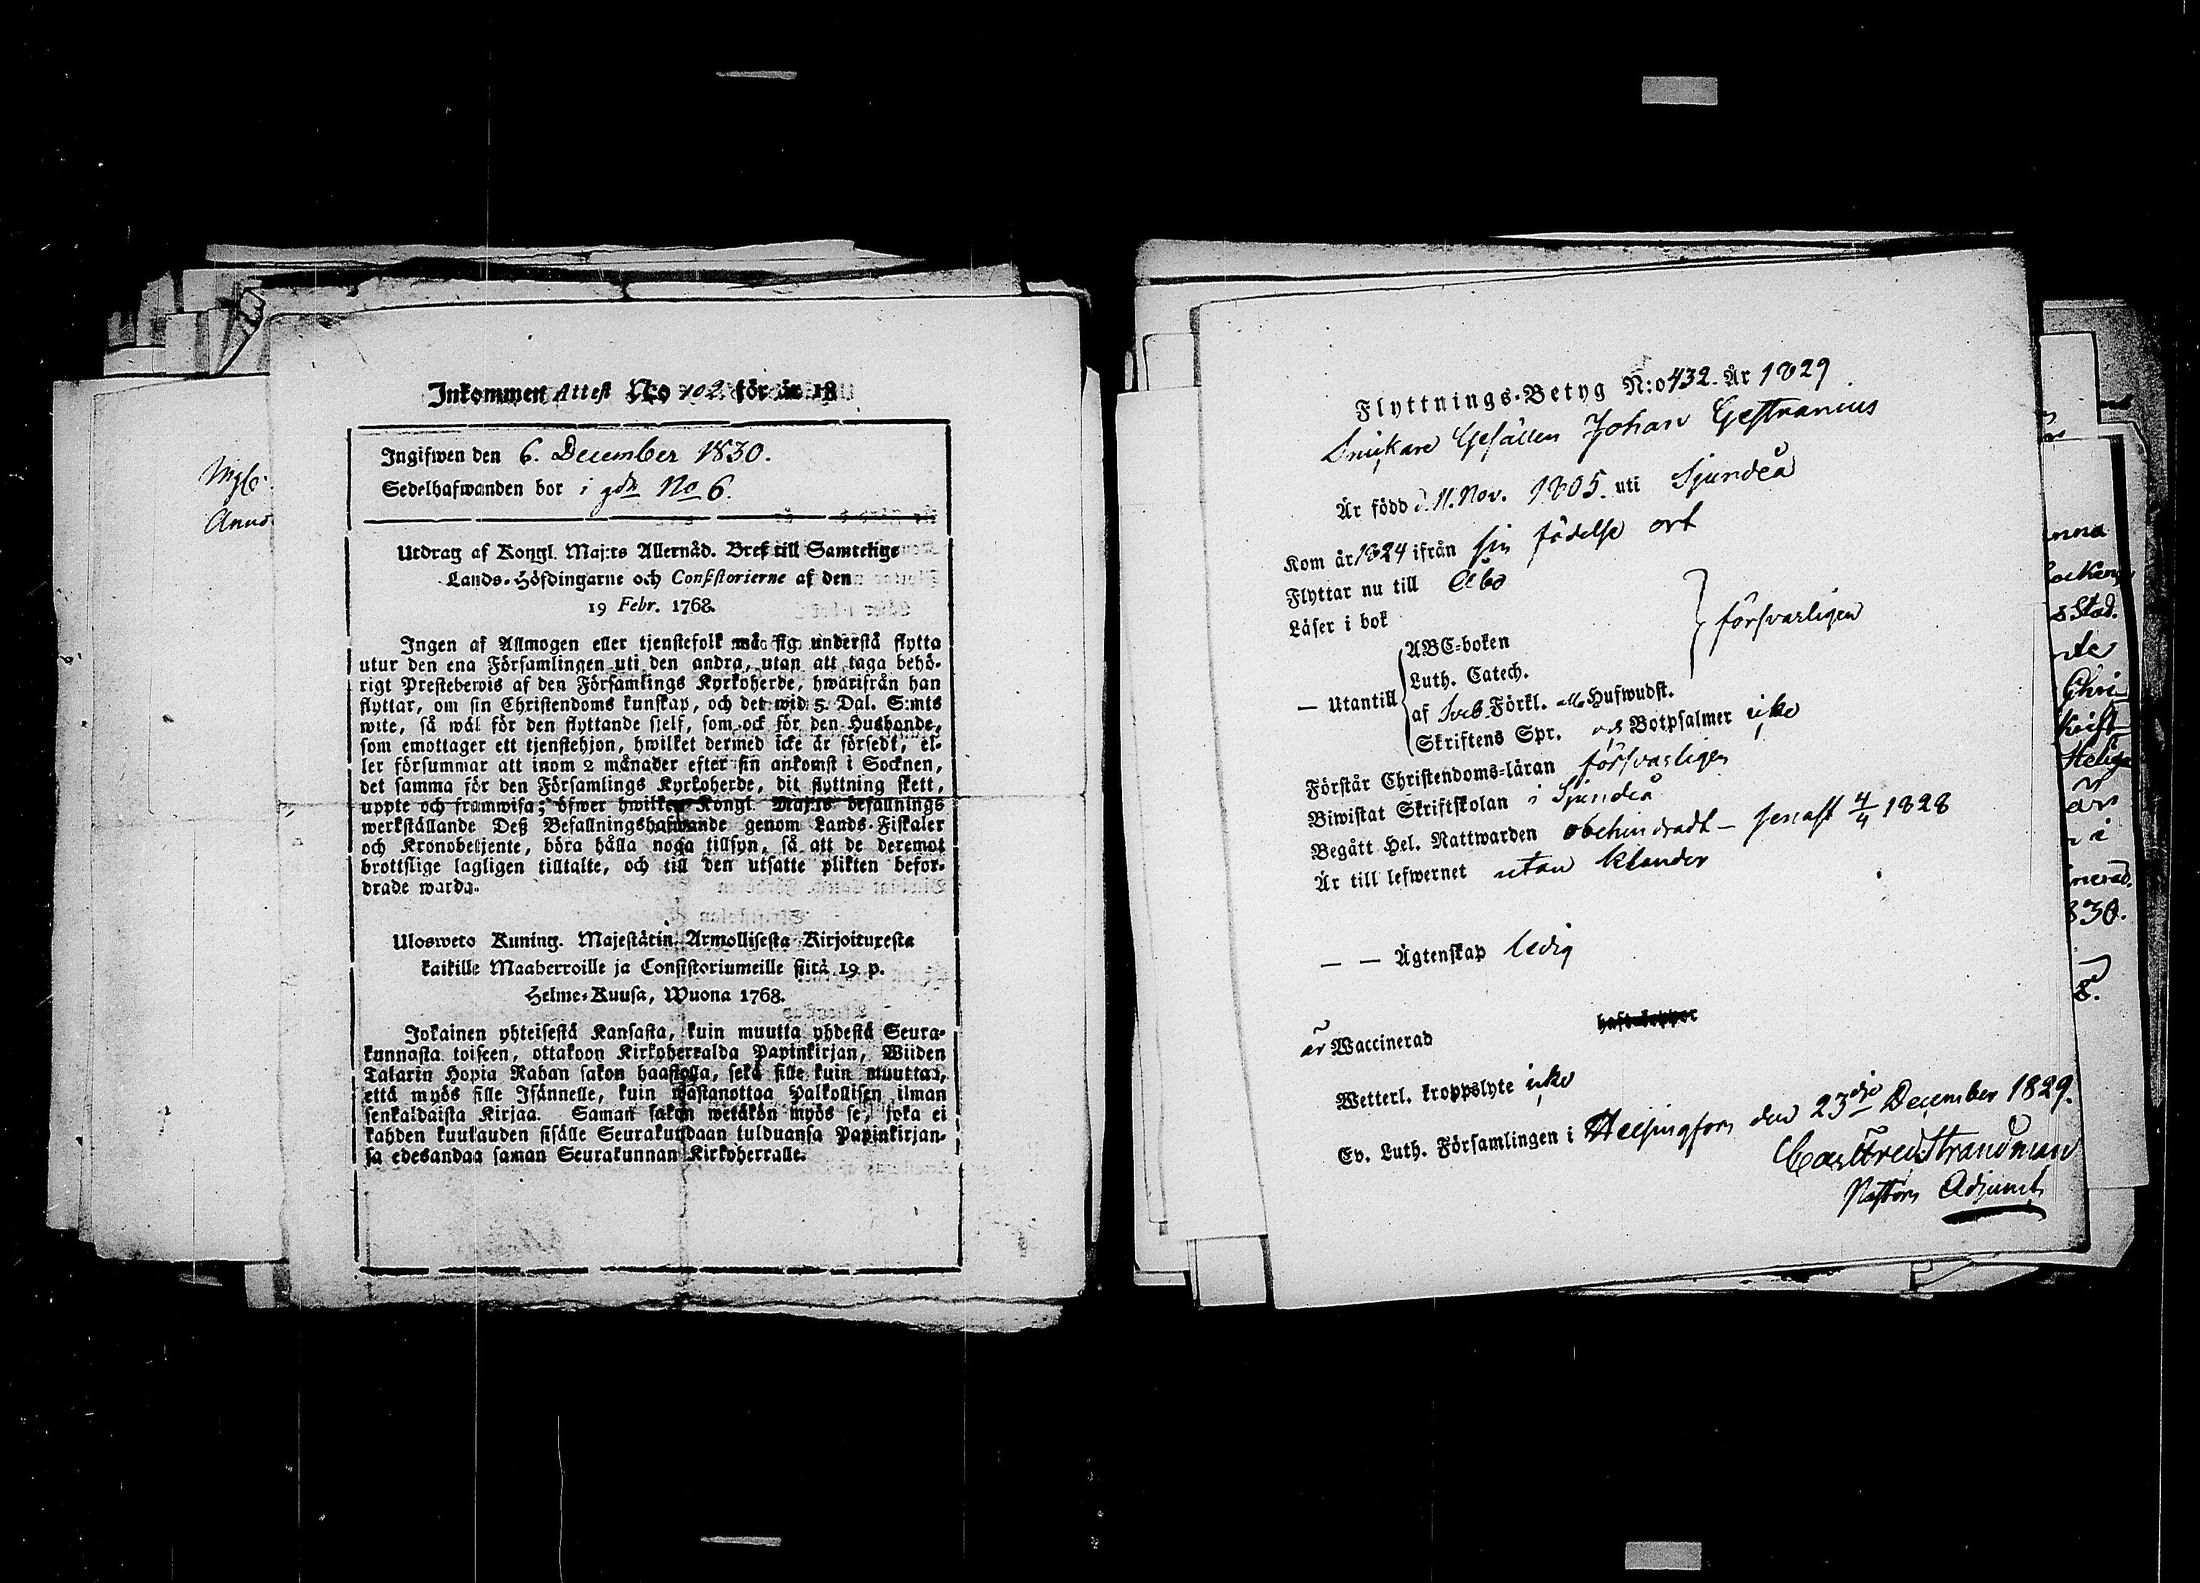 Mgb.
Anno
Inkommen Attest No 102. för år 18
Ingifwen den 6. December 1830.
Sedelhafwanden bor i gdn No 6.
Utdrag af Kongl. Maj:ts Allernåd. Bref till Samtelige
Lands-Höfdingarne och Consistorierne af den
19 Febr. 1768.
Ingen af Allmogen eller tjenstefolk må sig understå flytta
utur den ena Församlingen uti den andra, utan att taga behö-
rigt Prestebewis af den Församlings Kyrkoherde, hwarifrån han
flyttar, om sin Christendoms kunskap, och det wid 5. Dal. S:mts
wite, så wäl för den flyttande sielf, som ock för den Husbonde,
som emottager ett tjenstehjon, hwilket dermed icke är försedt, el-
ler försummar att inom 2 månader efter sin ankomst i Socknen,
det samma för den Församlings Kyrkoherde, dit flyttning skett,
uppte och framwisa; öfwer hwilken Kongl. Maj:ts befallnings
werkställande Deß Befallningshafwande genom Lands-Fiskaler
och Kronobetjente, böra hålla noga tillsyn, så att de deremot
brottslige lagligen tilltalte, och till den utsatte plikten befor-
drade warda.
Ulosweto Kuning. Majestätin Armollisesta Kirjoituxesta
kaikille Maaherroille ja Consistoriumeille siitä 19 p.
Helme-Kuusa, Wuona 1768.
Jokainen yhteisestä Kansasta, kuin muutta yhdestä Seura-
kunnasta toiseen, ottakoon Kirkoherralda Papinkirjan, Wiiden
Talarin Hopia Rahan sakon haastolla, sekä sille kuin muuttaa,
että myös sille Isännelle, kuin wastanottaa Palkollisen ilman
senkaldaista Kirjaa. Saman sakon wetäkön myös se, joka ei
kahden kuukauden sisälle Seurakundaan tulduansa Papinkirjan-
sa edesandaa saman Seurakunnan Kirkoherralle.
Flyttnings-Betyg N:o 432. År 1829.
Snickare Gesällen Johan Gestranius
Är född d. 11. Nov. 1805. uti Sjundeå
Kom år 1824 ifrån sin födelse ort
Flyttar nu till Åbo
Läser i bok
— Utantill
ABC-boken
Luth. Catech.
af Sveb. Förkl. alla Hufwudst.
Skriftens Spr. och Botpsalmer icke
försvarligen
Förstår Christendoms-läran försvarligen
Biwistat Skriftskolan i Sjundeå
Begått Hel. Nattwarden obehindradt – senast 4/4 1828
Är till lefwernet utan klander
— — Ägtenskap ledig
är Waccinerad
Wetterl. kroppslyte icke
Ev. Luth. Församlingen i Helsingfors den 23dje December 1829.
Carl Fred. Strandman
Pastors Adjunct
nna
Stad.
Chri-
Helige
830.